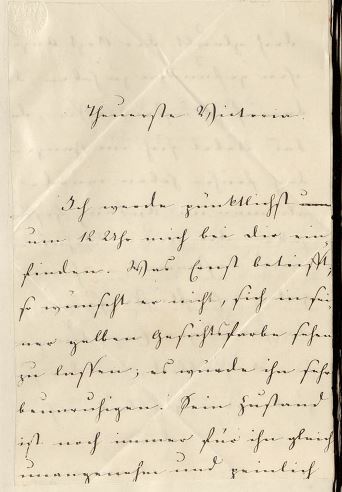 Theuerste Victoria.
Ich werde pünktlichst
um 12 Uhr mich bei dir ein,
finden. Was Ernst betrifft,
so wünscht er nicht, sich in sei,
ner gelben Gesichtsfarbe sehen
zu lassen; es wurde ihn sehr
beunruhigen. Sein Zustand
ist noch immer für ihn gleich
unangenehm und peinlich